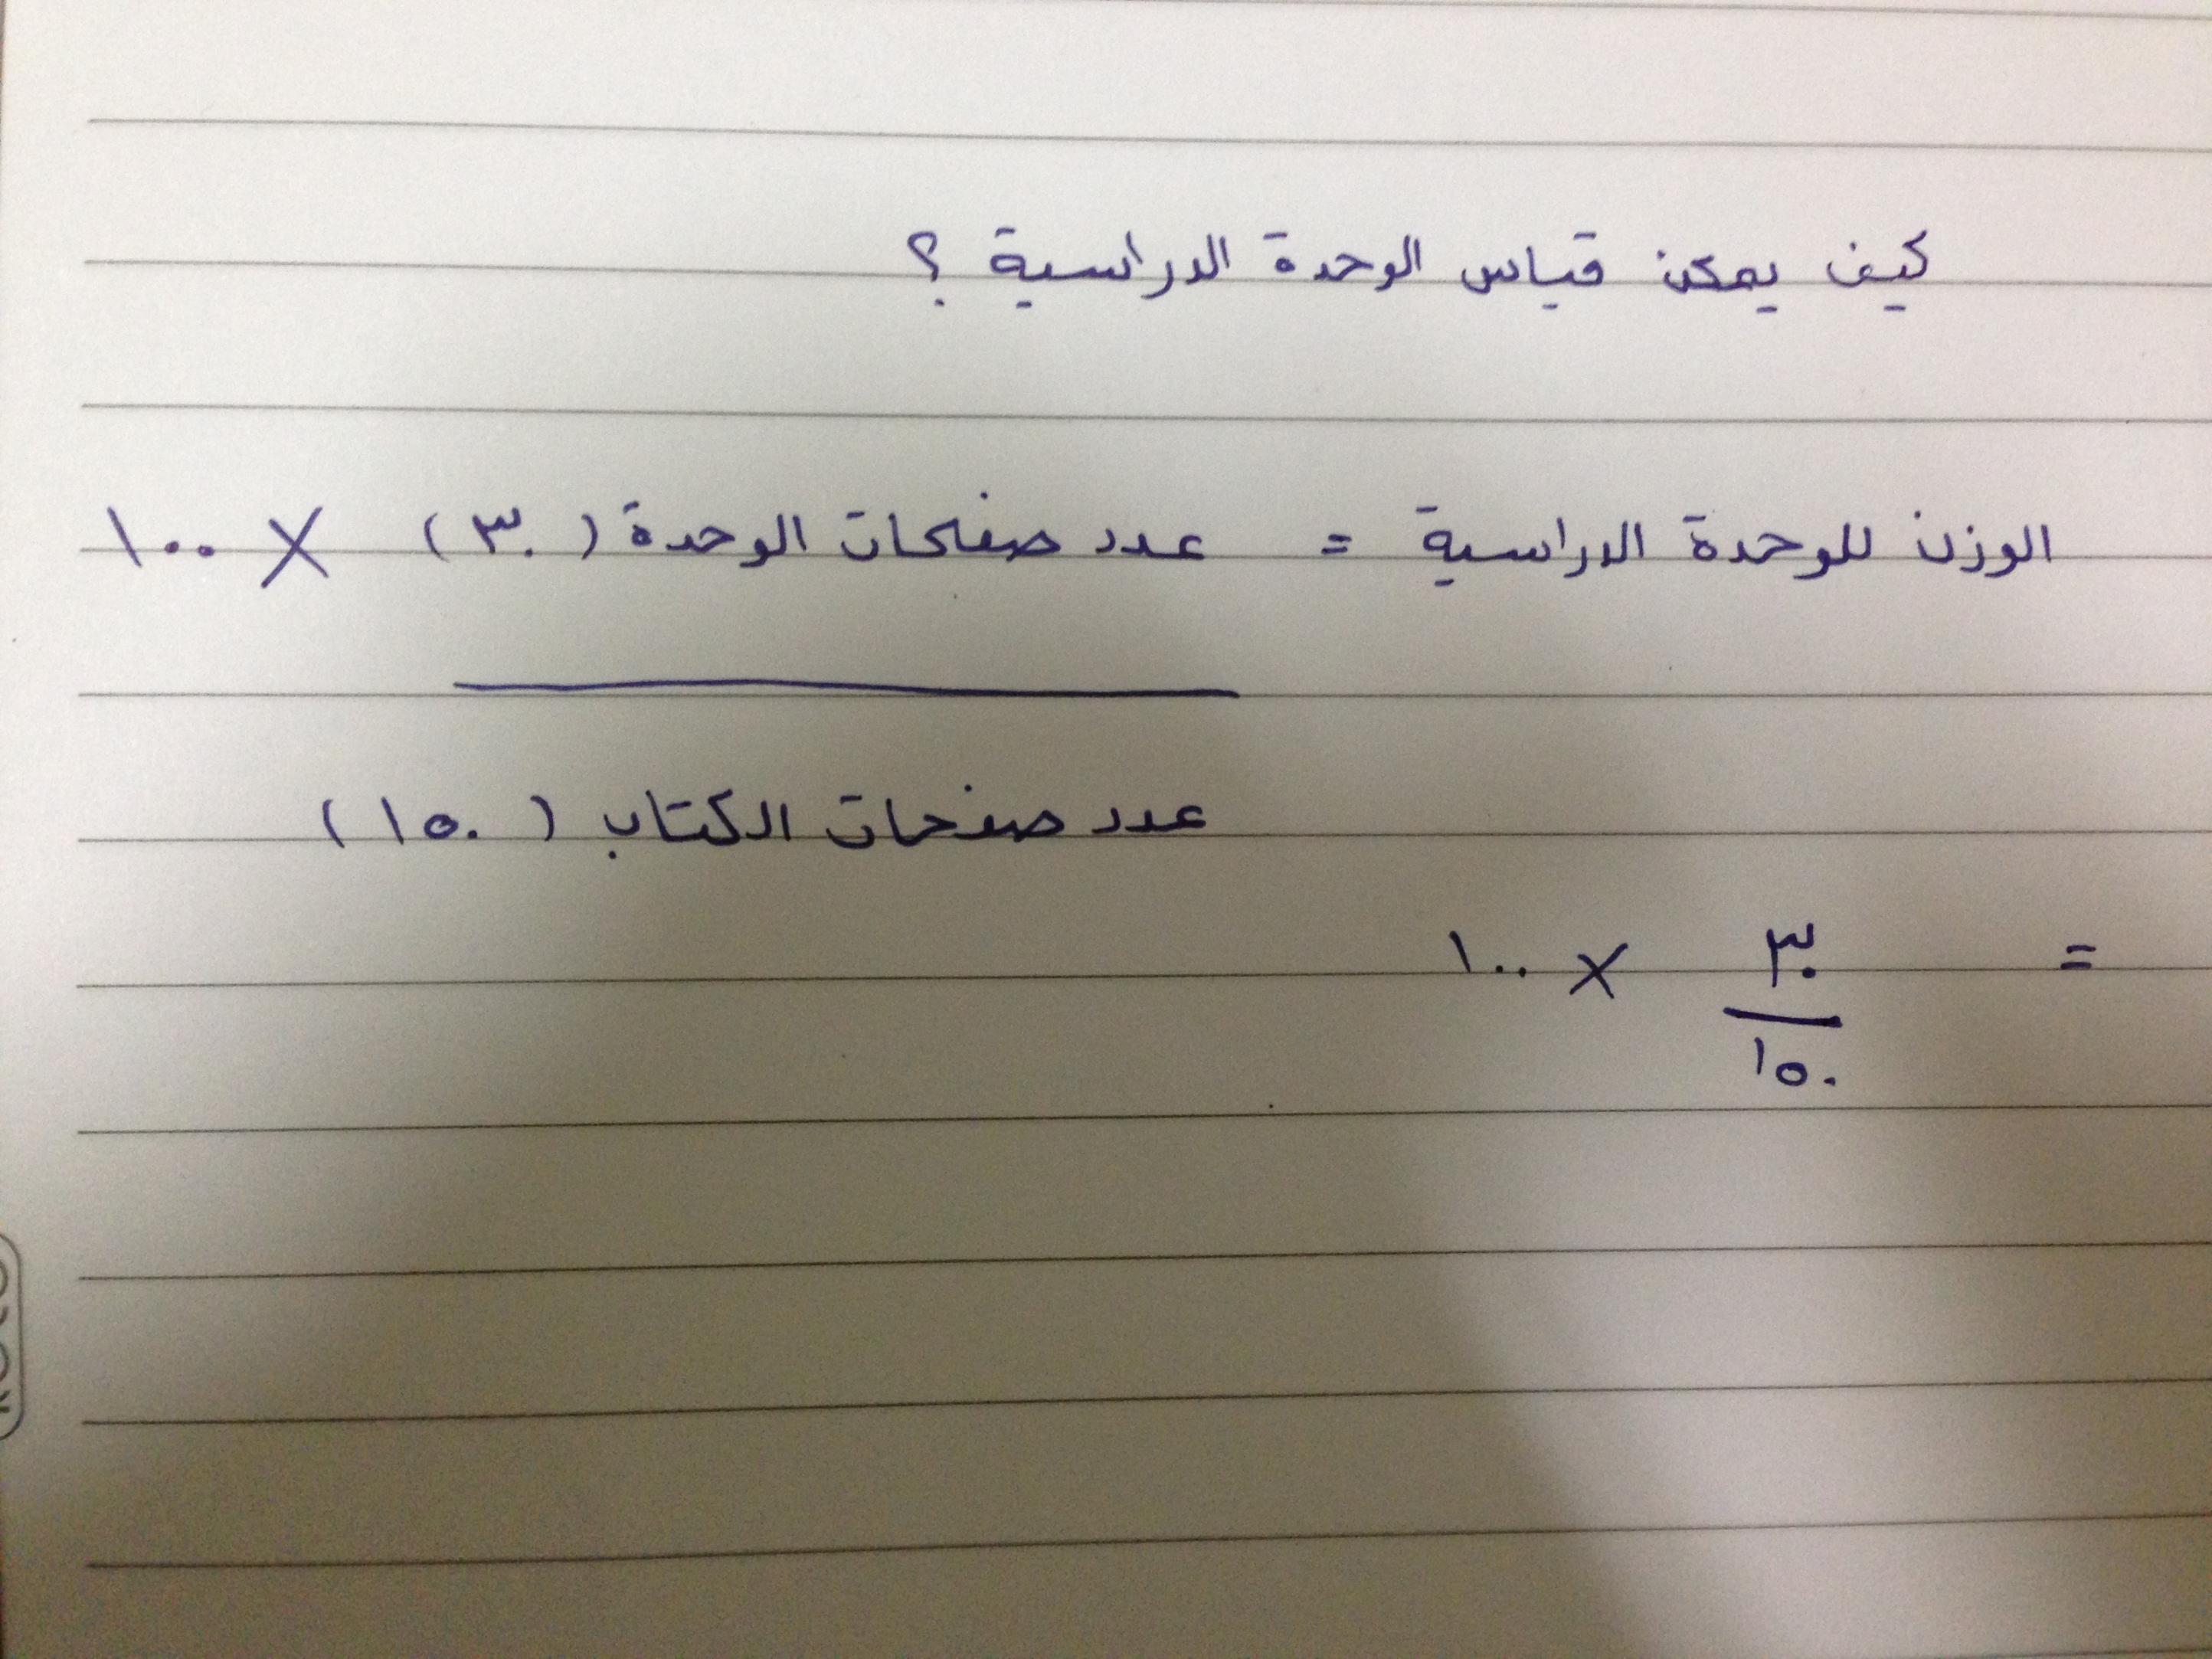 كيف يمكن قياس الوحدة الدراسية ؟
الوزن للوحدة الدراسية = عدد صفحات الوحدة ( ٣٠ ) × ١٠٠
عدد صفحات الكتاب ( ١٥٠ )
= ٣٠ × ١٠٠
١٥٠